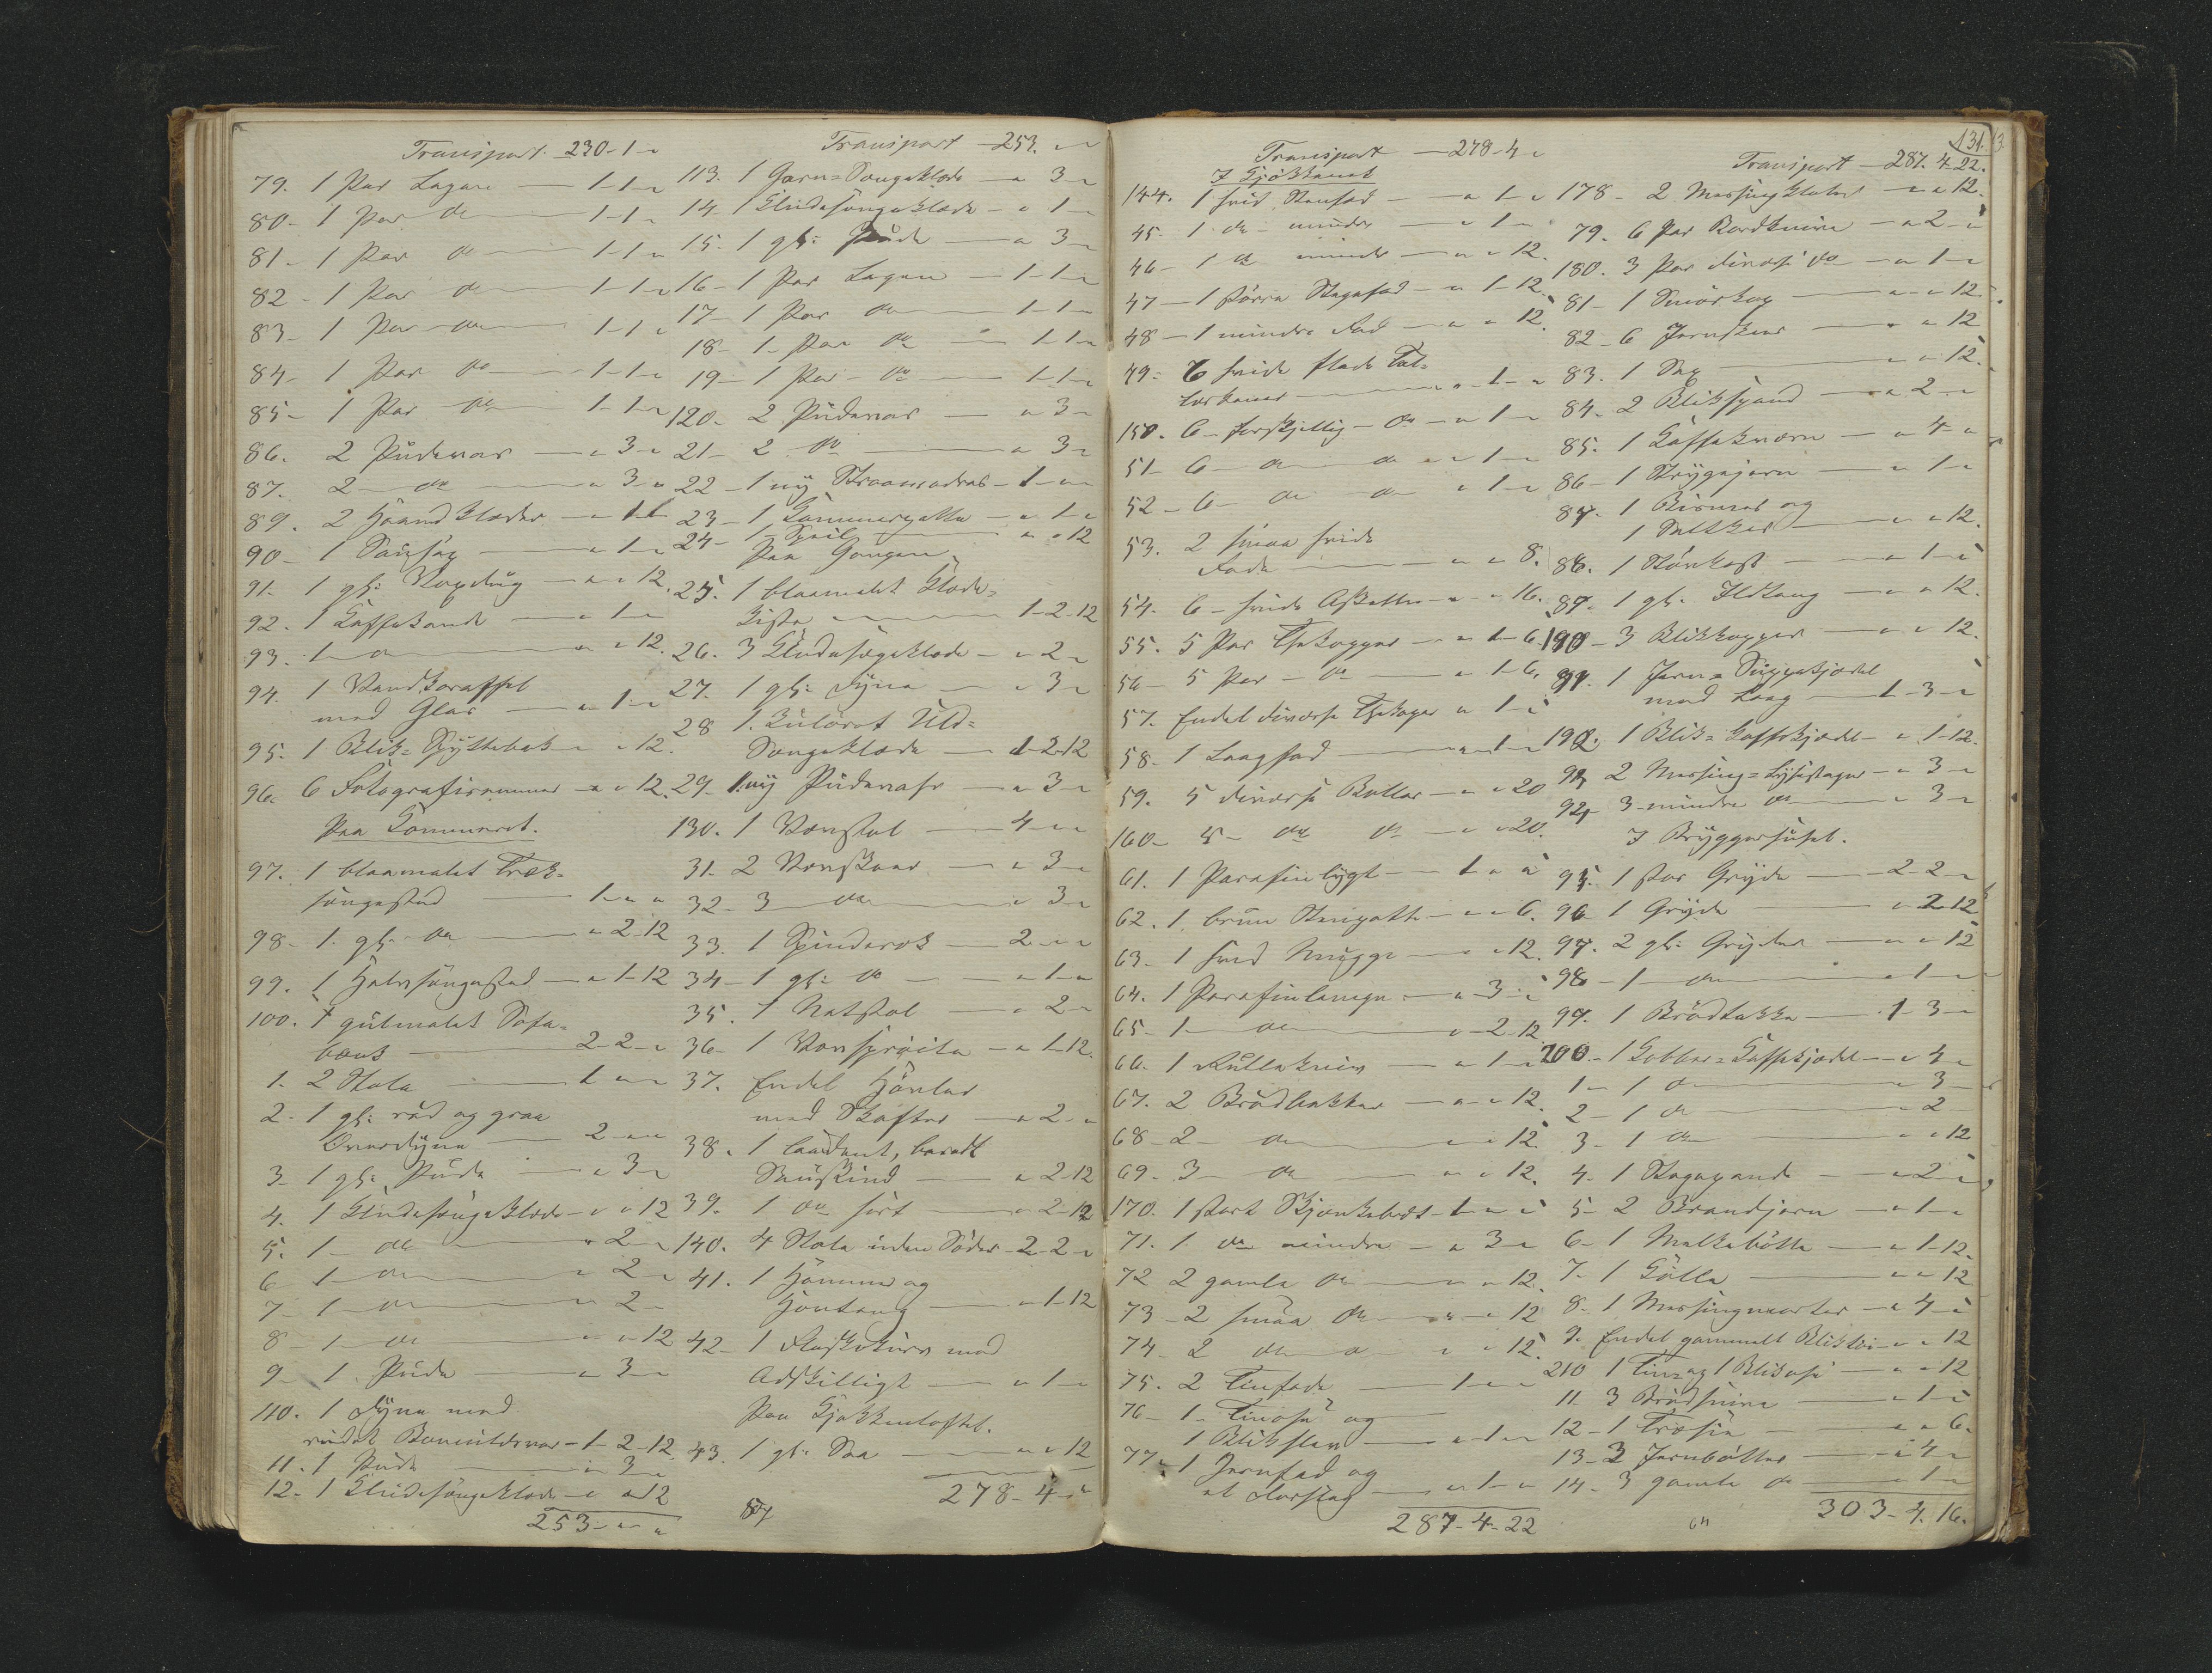 Transport 230-1-"
79. 1 Par Lagen 1-1-"
80- 1 Par do 1-1-"
81- 1 Par do 1-1-"
82- 1 Par do 1-1-"
83- 1 Par do 1-1-"
84- 1 Par do 1-1-"
85- 1 Par do 1-1-"
86. 2 Pudevar "-3-"
87. 2 do "-3-"
89. 2 Haandklæder "-1-"
90- 1 "-1-"
91. 1 gl: Voxdug "-"-12.
92. 1 Kaffekande "-1-"
93. 1 do "-"-12.
94. 1 Vandkaraffel
med Glas "-1-"
95. 1 Blik= Spyttebak "-"-12.
96. 6 Fotografirammer "-"-12.
Paa Kammeret.
97. 1 blaamalet Træk-
sengested 1-"-"
98- 1 gl. do "-2-12
99. 1 Halvsengested "-1-12
100. 1 gulmalet Sofa-
bænk 2-2-"
1. 2 Stole 1-"-"
2. 1 gl: rød og graa
Overdyne 2-"-"
3- 1 gl: Pude "-3-"
4. 1 Kludesengeklæde "-"-12
5. 1 do "-2-"
6 1 do "-2-"
7- 1 do "-2-
8- 1 do "-"-12
9- 1 Pude "-3-"
110. 1 Dyne med
Bomuldsvar 1-2-12
11. 1 Pude "-3-
12- 1 Kludesengeklæde "-"-12
253-"-"
Transport 253-"-"
113. 1 Garn=Sengeklæde "-3-"
14- 1 Kludesengeklæde "-1-"
15. 1 gl: Pude "-3-"
16- 1 Par Lagen 1-1-"
17- 1 Par do 1-1-"
18- 1 Par do 1-1-"
19- 1 Par do 1-1-"
120. 2 Pudevar "-3-"
21- 2 do "-3-"
22- 1 ny Straamadras 1-"-"
23- 1 Kammerpotte "-1-"
24- 1 Speil "-"-12
Paa Gangen
25. 1 blaamalet Klæde-
Kiste 1-2-12
26. 3 Kludesengeklæde "-2-"
27. 1 gl: Dyne "-3-"
28 1 Uld=
Sengeklæde 1-2-12
29- 1 ny Pudevar "-3-"
130. 1 Vævstol 4-"-"
31- 2 Vævskeer "-3-"
32- 3 do "-3-"
33. 1 Spinderok 2-"-"
34- 1 gl: do "-1-"
35. 1 Natstol "-2-"
36- 1 "-1-12.
37. Endel Høvler
med Skafter "-2-"
38. 1 beredt
Saueskind "-2-12
39. 1 do sort "-2-12
140. 4 Stole uden Sæder 2-2-"
41. 1 Hammer og
Hovtang "-1-12
42- 1 Flaskekurv med
Adskilligt "-1-"
Paa Kjøkkenloftet.
43. 1 gl: "-"-12
278-4-"
131.
Transport 278-4-"
I Kjøkkenet
144. 1 hvid Stenfad "-1-"
45- 1 do mindre "-1-"
46- 1 do mindre "-"-12.
47- 1 større Stegefad "-1-12.
48- 1 mindre Fad "-"-12.
49- 6 hvide flade Tal-
lerkener "-1-"
150. 6 forskjellig do "-1-"
51- 6 do do "-1-"
52- 6 do do "-1-"
53. 2 smaa hvide
Fade "-"-8.
54. 6 hvide Asietter "-"-16.
55. 5 Par Thekopper "-1-6.
56- 5 Par do "-1-6.
57. Endel diverse Thekoper "-1-"
58- 1 Laagfad "-1-"
59. 5 diverse Boller "-"-20
160- 5 do do "-"-20.
61. 1 Parafinlygt 1-"-"
62. 1 brun Stenpotte "-"-6.
63- 1 hvid Mugge "-"-12.
64. 1 Parafinlampe "-3-"
65- 1 do "-2-12
66. 1 Rullekniv "-1-"
67. 2 Brødbakker "-"-12.
68- 2- do "-"-12.
69. 3- do "-"-12.
170. 1 stort Skjænkebret 1-"-"
71. 1 do mindre "-3-"
72 2 gamle do "-"-12.
73- 2 smaa do "-"-12
74- 2 do do "-"-12.
75. 2 Tinfade 1-"-"
76- 1 og
1 "-1-"
77. 1 Jernfad og
et Dørslag "-1-"
287-4-22
Transport 287.4-22.
178- 2 "-"-12.
79. 6 Par Bordknive "-2-"
180. 3 Par diverse do "-1-"
81- 1 Smørkop "-"-12.
82- 6 Jernskeer "-"-12
83. 1 "-"-12.
84. 2 Blikspand "-2-"
85. 1 Kaffekværn "-4-"
86- 1 Strygejern "-1-"
87. 1 Bismer og
1 Saltkar "-"-12.
86. 1 Støvkost "-1-"
87. 1 gl. Ildtang "-"-12.
190- 3 Blikkopper "-"-12.
91. 1 Jern= Suppekjedel
med Laag 1-3-"
192. 1 Blik= Kaffekjedel "-1-12.
93 2 Messing=Lysestager "-3-"
94 3 mindre do "-3-"
I Bryggerhuset.
95. 1 stor Gryde 2-2-"
96- 1 Gryde "-2-12
97. 2 gl: Gryder "-"-12
98- 1 do "-1-"
99. 1 Brødtakke 1-3-"
200.- 1 Kobber=Kaffekjedel "-4-"
1- 1 do "-3-
2- 1 do "-2-
3- 1 do "-"-12
4- 1 Stegepande "-2-"
5- 2 Brandjern "-1-"
6- 1 Melkebøtte "-1-12.
7- 1 Kolle "-"-12
8- 1 Messingmorter "-4-"
9. Endel gammelt Bliktøi "-"-12
210 1 Tin- og 1 "-"-12
11. 3 "-1-"
12- 1 "-"-6.
13- 3 Jernbøtter "-4-"
14- 3 gamle do "-1-"
303-4-16.